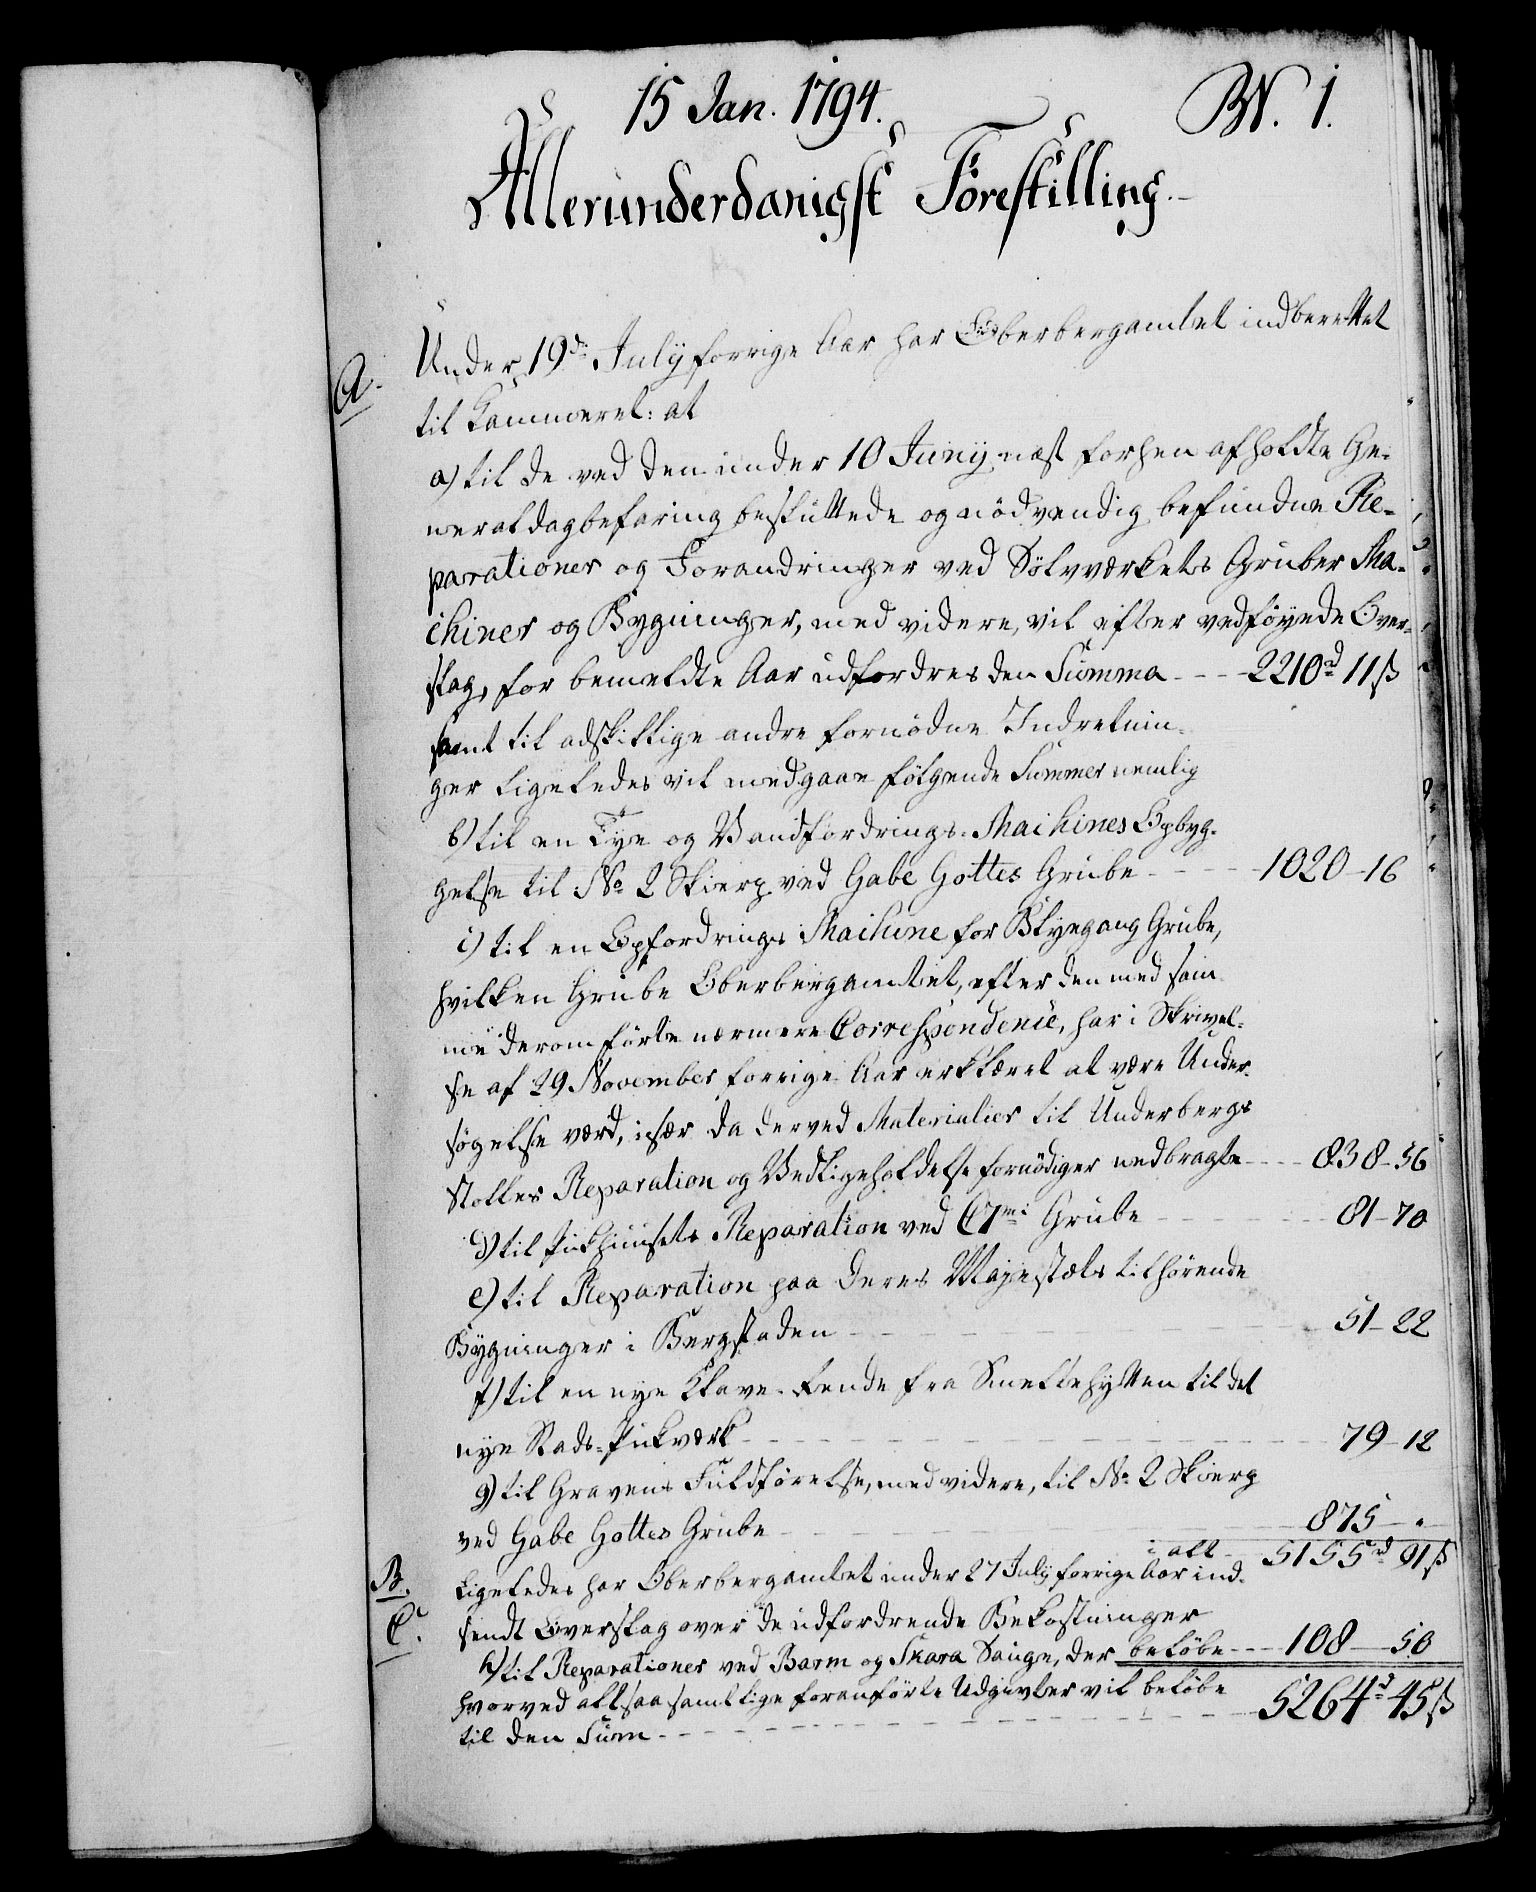 15 Jan. 1794.
BN. 1.
Allerunderdanigst Forestilling.
Under 19de July forrige Aar har Oberbergamtet indberettet
A.
til Kammeret: at
a) til de ved den under 10 Junij næst forhen afholdte Ge-
neraldagbefaring besluttede og nödvendig befundne Re-
parationer og Forandringer ved Sölvværkets Gruber Ma-
chiner og Bygninger, med videre, vil efter vedföyede Over-
slag, for bemeldte Aar udfordres den Summa - - - 2210d 11ß
samt til adskillige andre fornödne Indretnin-
ger ligeledes vil medgaae fölgende Summer nemlig
b) til en Tye og Vandfordrings-Machines Opbyg-
gelse til No 2 Skierp ved Gabe Gottes Grube - - - 1020 - 16
c) til en Opfordrings Machine for Blyegang Grube,
hvilken Grube Oberbergamtet, efter den med sam-
me derom förte nærmere Correspondence, har i Skrivel-
se af 29 November forrige Aar erklæret at være Under-
sögelse værd, især da derved Materialier til Underbergs
Stollens Reparation og Vedligeholdelse fornödiger nedbragte - - - 838 - 56
d) til Pukhuusets Reparation ved C7mi Grube - - - 81 - 70
e) til Reparation paa Deres Majestæts tilhörende
Bygninger i Bergstaden - - - 51 - 22
f) til en nye Klave-Rende fra Smeltehytten til det
nye Stads-Pukværk - - - 79 - 12
g) til Gravens Fuldförelse, med videre, til No 2 Skierp
ved Gabe Gottes Grube - - - 875 - "
i alt - 5155d 91ß
B.
Ligeledes har Oberbergamtet under 27 July forrige Aar ind-
C.
sendt Overslag over de udfordrende Bekostninger
h) til Reparationer ved Barm og Skara Sauge, der belöbe - - - 108 - 50
hvorved altsaa samtlige foranförte Udgivter vil belöbe
til den Sum - - - 5264d 45ß